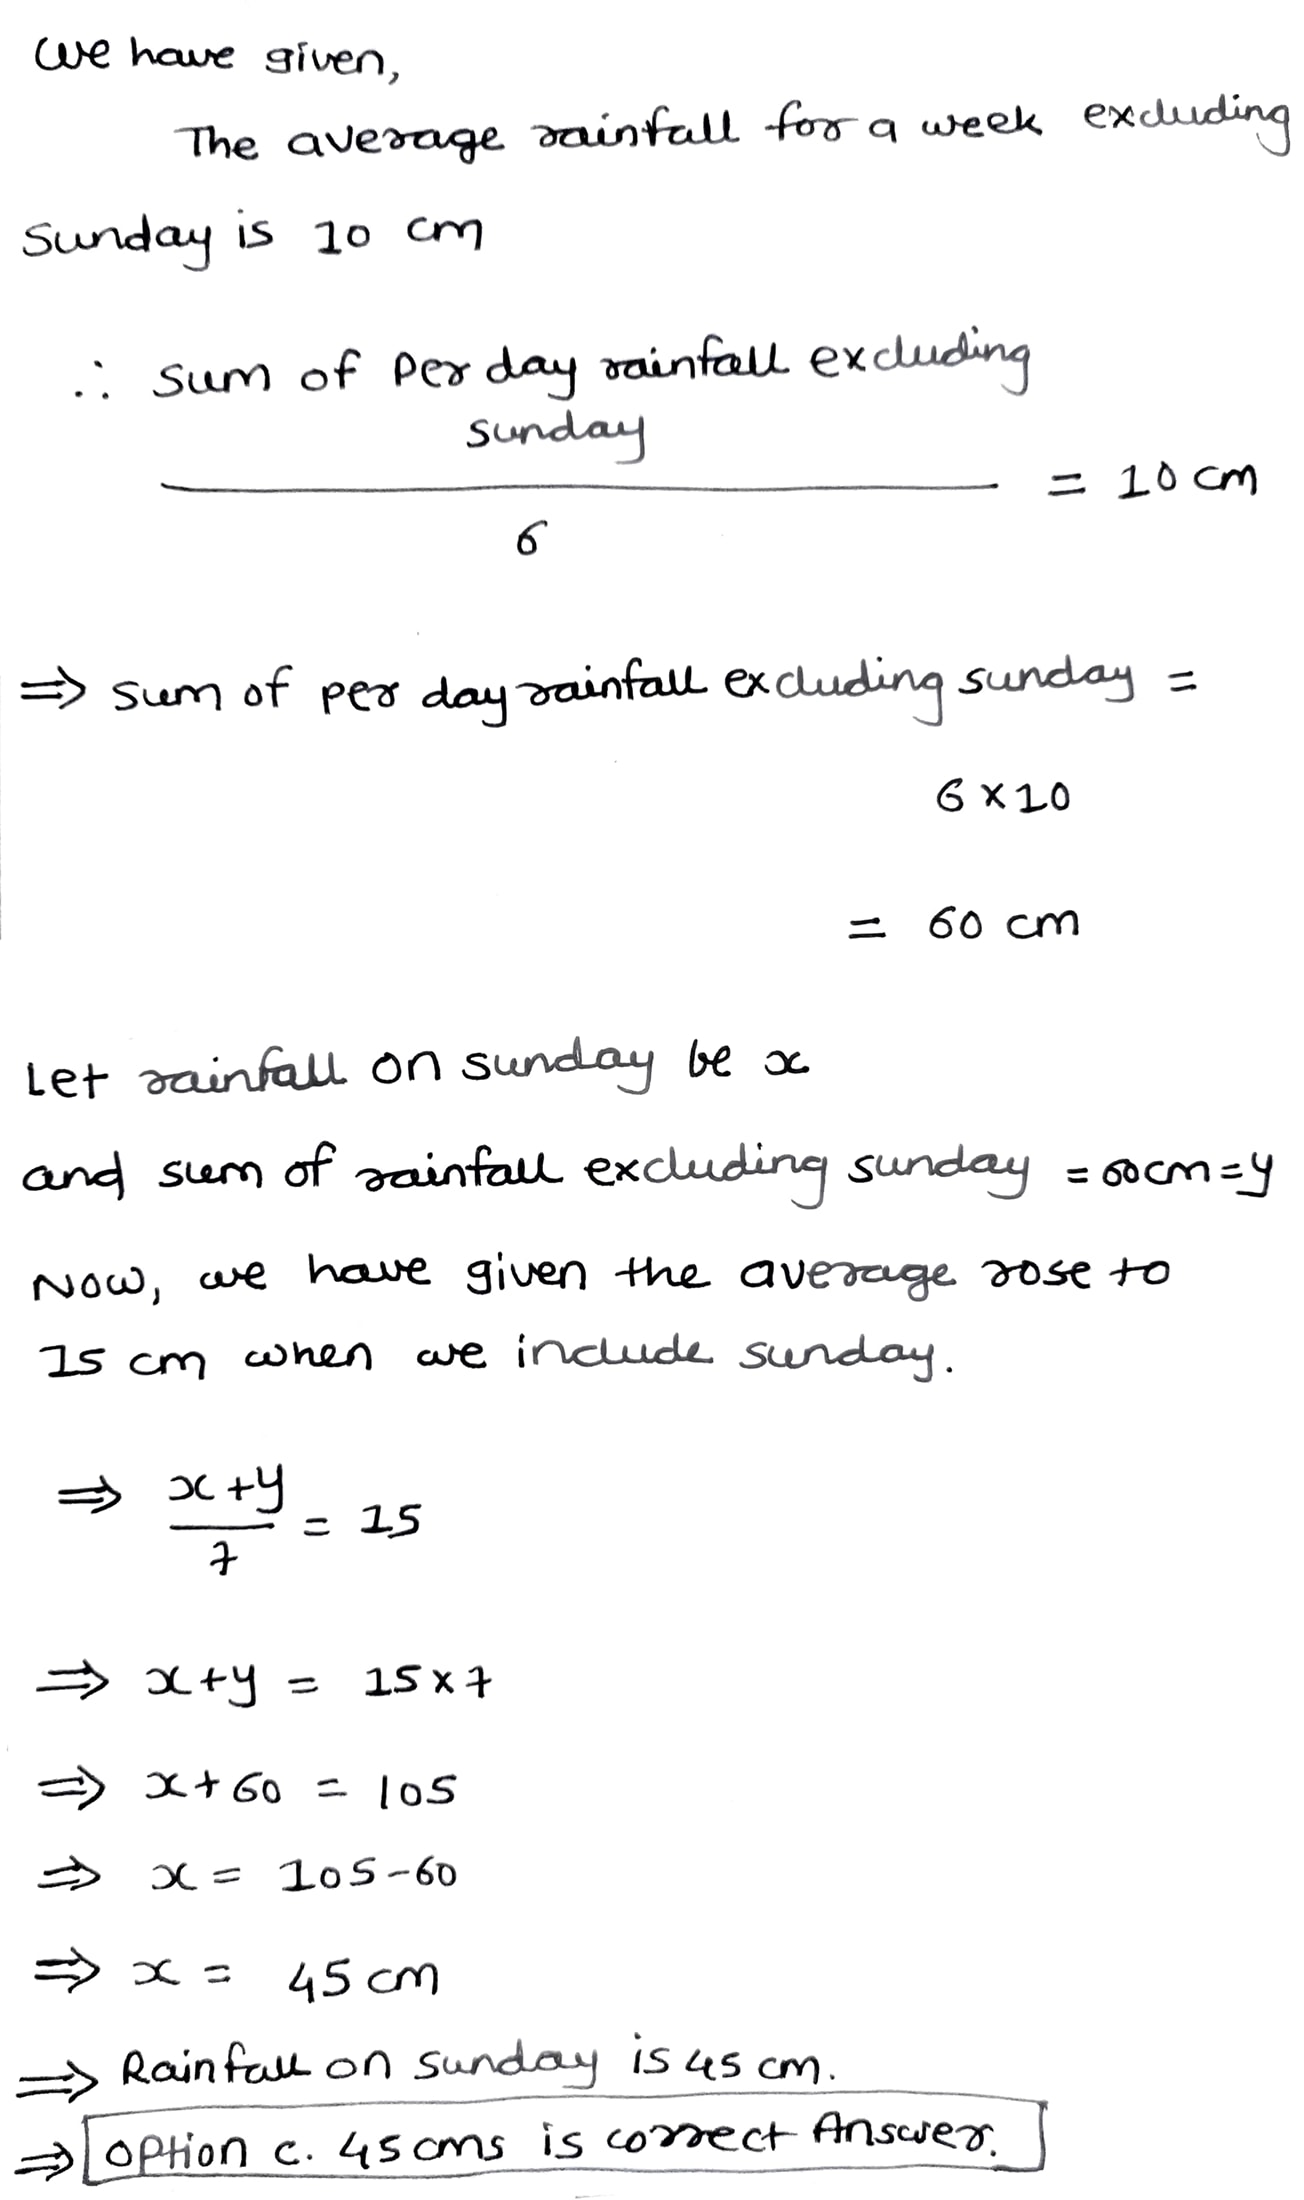 We have given,
The average rainfall for a week excluding
Sunday is 10 cm
∴ sum of per day rainfall excluding
sunday
= 10 cm
6
⇒ sum of per day rainfall excluding sunday =
6 × 10
= 60 cm
Let rainfall on sunday be x
and sum of rainfall excluding sunday = 60cm = y
Now, we have given the average rose to
15 cm when we include sunday.
⇒ x + y
= 15
7
⇒ x + y = 15 × 7
⇒ x + 60 = 105
⇒ x = 105 - 60
⇒ x = 45 cm
⇒ Rainfall on sunday is 45 cm.
⇒ option c. 45 cms is correct Answer.